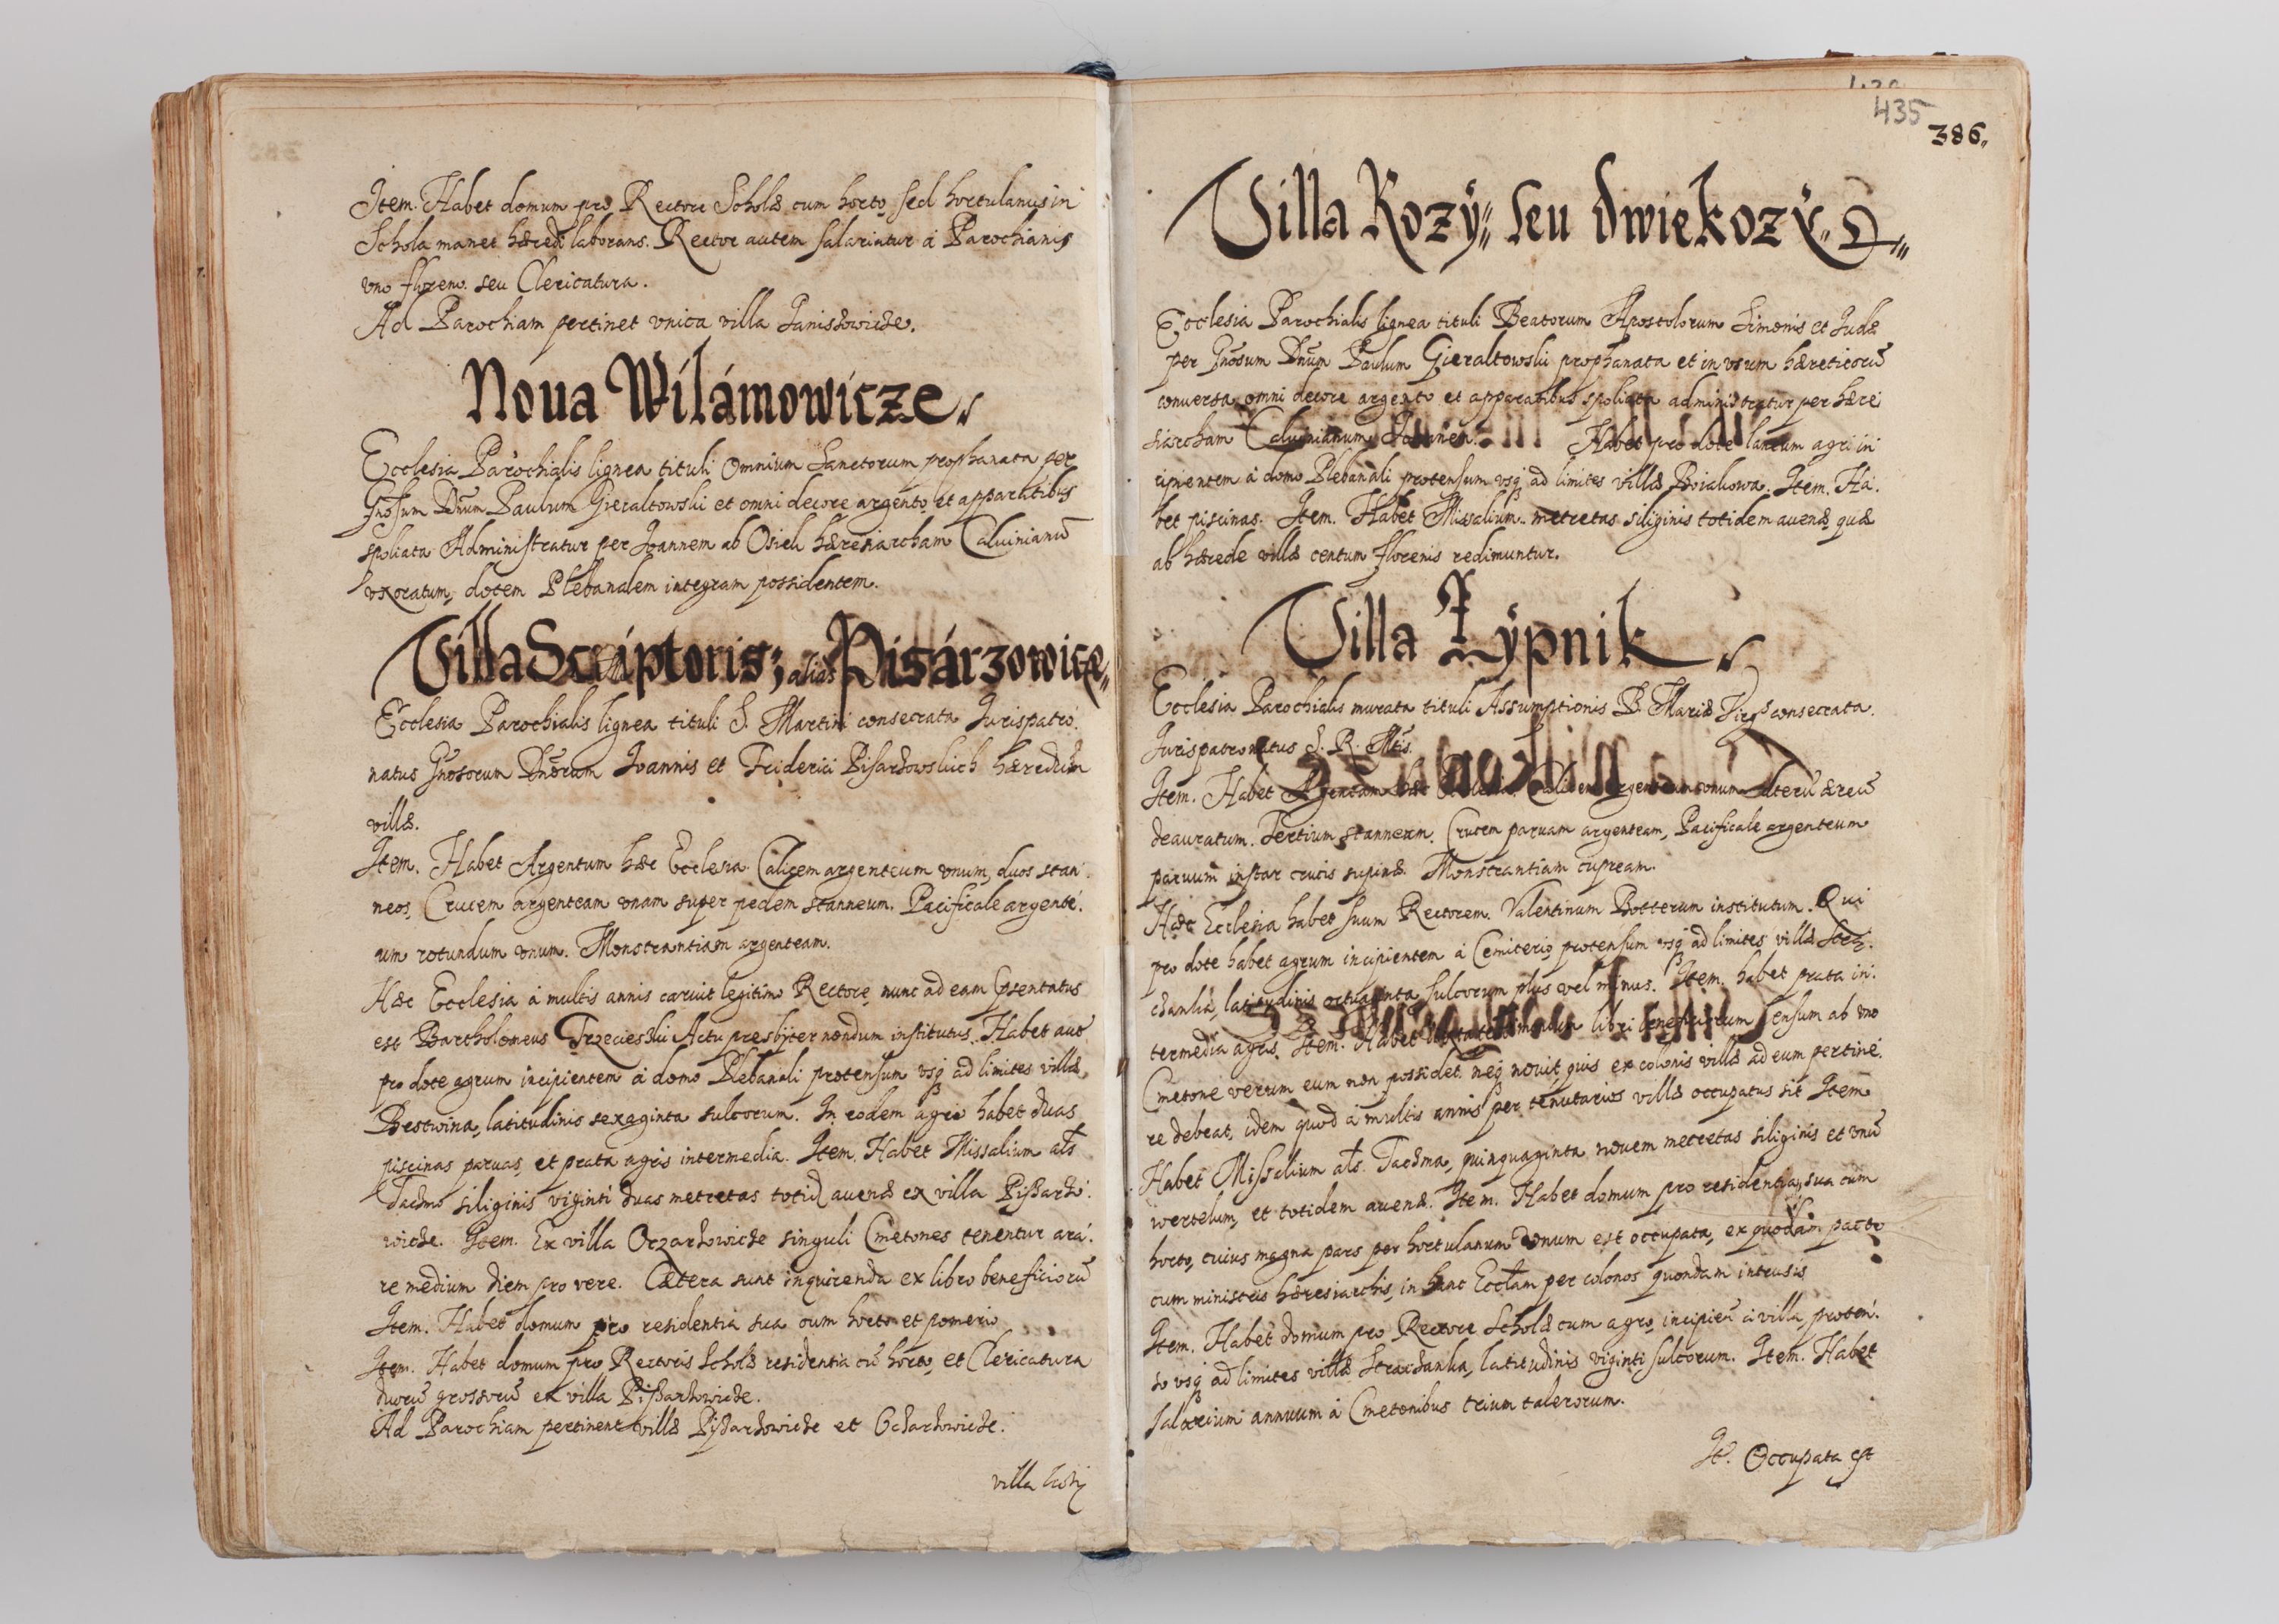 Item. Habet domum pro Rectore Scholæ cum horto, sed hortulanus in
Schola manet hæredi laborans. Rector autem salariatur à Parochianis
vno floreno seu Clericatura.
Ad Parochiam pertinet vnica villa Janiszowicze.
Noua Wilámowicze.
Ecclesia Parochialis lignea tituli Omnium Sanctorum prophanata per
Gnosum Dnum Paulum Gieraltowski et omni decore argento et apparatibus
spoliata Administratur per Joannem ab Osiek hæresiarcham Caluinianũ
vxoratum, dotem Plebanalem integram possidentem.
Villa Scriptoris; alias Pisárzowice
Ecclesia Parochialis lignea tituli S. Martini consecrata Jurispatro
natus Gnosorum Dnorum Joannis et Friderici Pisarzowskich hæredum
villæ.
Item. Habet Argentum hæc Ecclesia Calicem argenteum vnum, duos stan
neos, Crucem argenteam vnam super pedem stanneum. Pacificale argente
um rotundum vnum. Monstrantiam argenteam.
Hæc Ecclesia à multis annis caruit legitimo Rectore, nunc ad eam pñsentatus
est Bartholomeus Trzecieski Actu presbyter nondum institutus. Habet aut
pro dote agrum incipientem à domo Plebanali protensum vsq ad limites villæ
Bestwina, latitudinis sexaginta sulcorum. In eodem agro habet duas
piscinas paruas, et prata agris intermedia. Item. Habet Missalium als
Taczmo siliginis viginti duas metretas totid auenæ ex villa Pissarzo
wicze. Item. Ex villa Orzarzowicze singuli Cmetones tenentur ara
re medium diem pro vere. Cætera sunt inquirenda ex libro beneficiorũ
Item. Habet domum pro residentia sua cum horto et pomerio
Item. Habet domum pro Rectoris Scholæ residentia cũ horto, et Clericatura
duorũ grossorũ ex villa Pissarzowicze.
Ad Parochiam pertinent villæ Pissarzowicze et Oczarzowicze.
villa Kozy
435
386.
Villa Kozÿ seu Dwiekozÿ
Ecclesia Parochialis lignea tituli Beatorum Apostolorum Simonis et Judæ
per Gnosum Dnum Paulum Gieraltowski prophanata et in vsum hæreticorũ
conuersa, omni decore argento et apparatibus spoliata administratur per hære
siarcham Caluinianum Joannem. Habet pro dote laneum agri in
cipientem à domo Plebanali protensum vsq ad limites villæ Bialiowa. Item. Ha
bet piscinas. Item. Habet Missalium metretas siliginis totidem auenæ, quæ
ab hærede villæ centum florenis redimuntur.
Villa Lÿpnik
Ecclesia Parochialis murata tituli Assumptionis B. Mariæ Virgs consecrata.
Jurispatronatus S. R. Mtis.
Item. Habet Argentum hæc Ecclesia Calicem argenteum vnum alterũ æreũ
deauratum. Tertium stanneum. Crucem paruam argenteam, Pacificale argenteum
paruum instar crucis supinæ. Monstrantiam cupream.
Hæc Ecclesia habet suum Rectorem. Valentinum Botterum institutum. Qui
pro dote habet agrum incipientem à Cemiterio, protensum vsq ad limites villæ Stra
czanka, latitudinis octuaginta sulcorum plus vel minus. Item. habet prata in
termedia agris. Item. Habet libri beneficiorum censum ab vno
Cmetone verum eum non possidet neq nouit quis ex colonis villæ ad eum pertine
re debeat, idem quod à multis annis per tenutarios villæ occupatus sit Item
Habet Missalium als Taczma, quinquaginta nouem metretas siliginis et vnũ
wertelum, et totidem auenæ. Item. Habet domum pro residentia sua cum
horto, cuius magna pars per hortulanum vnum est occupata, ex quodam pacto
cum ministris hæresiarchis, in hanc Ecclam per colonos quondam intrusis
Item. Habet domum pro Rectore Scholæ cum agro, incipien à villa, proten
so vsq ad limites villæ Straczanka, latitudinis viginti sulcorum. Item. Habet
salarium annuum à Cmetonibus trium talerorum.
It. Occupata est